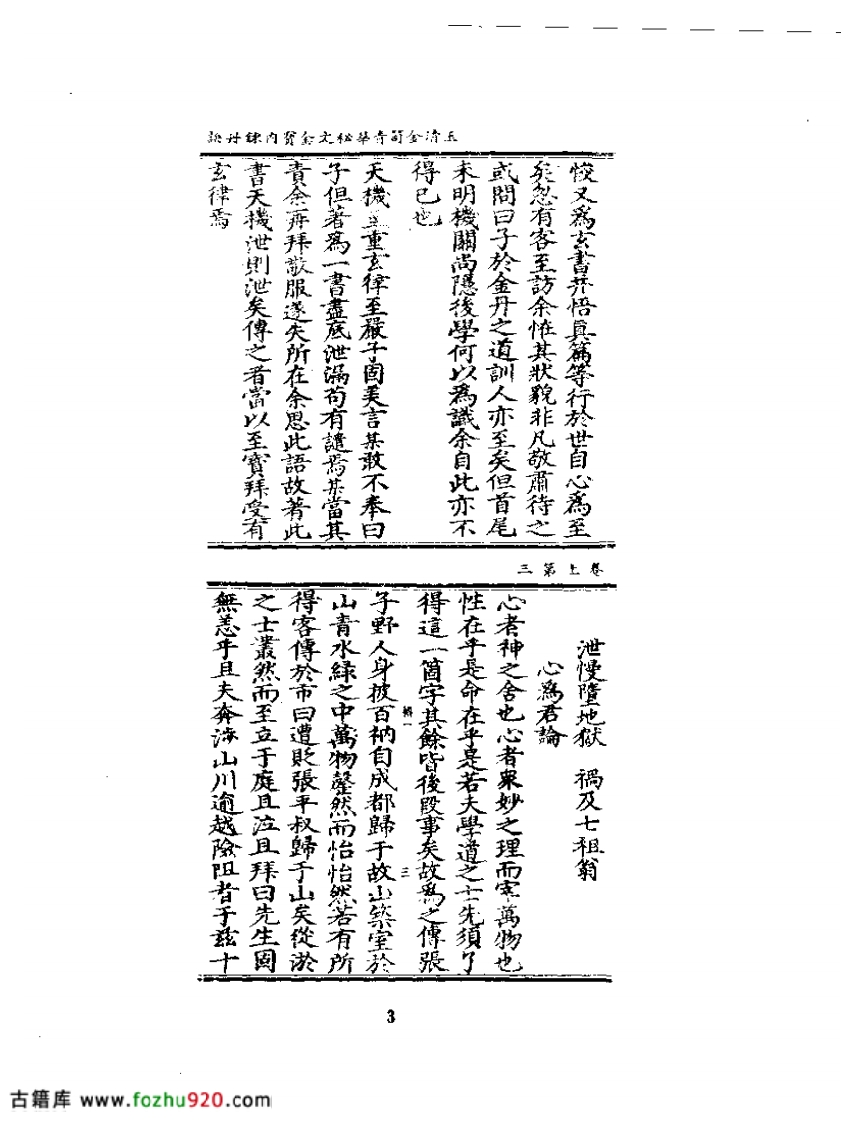 玉清金笥青華秘文金寶內鍊丹訣
悛又為玄書并悟真篇等行於世自心為至
矣忽有客至訪余怪其狀貌非凡敬肅待之
或問曰子於金丹之道訓人亦至矣但首尾
未明機關尚隱後學何以為識余自此亦不
得已也
天機至重玄律至嚴子固美言某敢不奉曰
子但著為一書盡底泄漏苟有譴焉某當其
責余再拜敬服遂失所在余思此語故著此
書天機泄則泄矣傳之者當以至寶拜受有
玄律焉
卷上第三
泄慢墮地獄 禍及七祖翁
心為君論
心者神之舍也心者眾妙之理而宰萬物也
性在乎是命在乎是若夫學道之士先須了
得這一箇字其餘皆後段事矣故為之傳張
子野人身披百衲自成都歸于故山築室於
山青水綠之中萬物罄然而怡怡然若有所
得客傳於市曰遭貶張平叔歸于山矣從游
之士叢然而至立于庭且泣且拜曰先生固
無恙乎且夫奔海山川逾越險阻者于茲十
三
3
古籍库 www.fozhu920.com